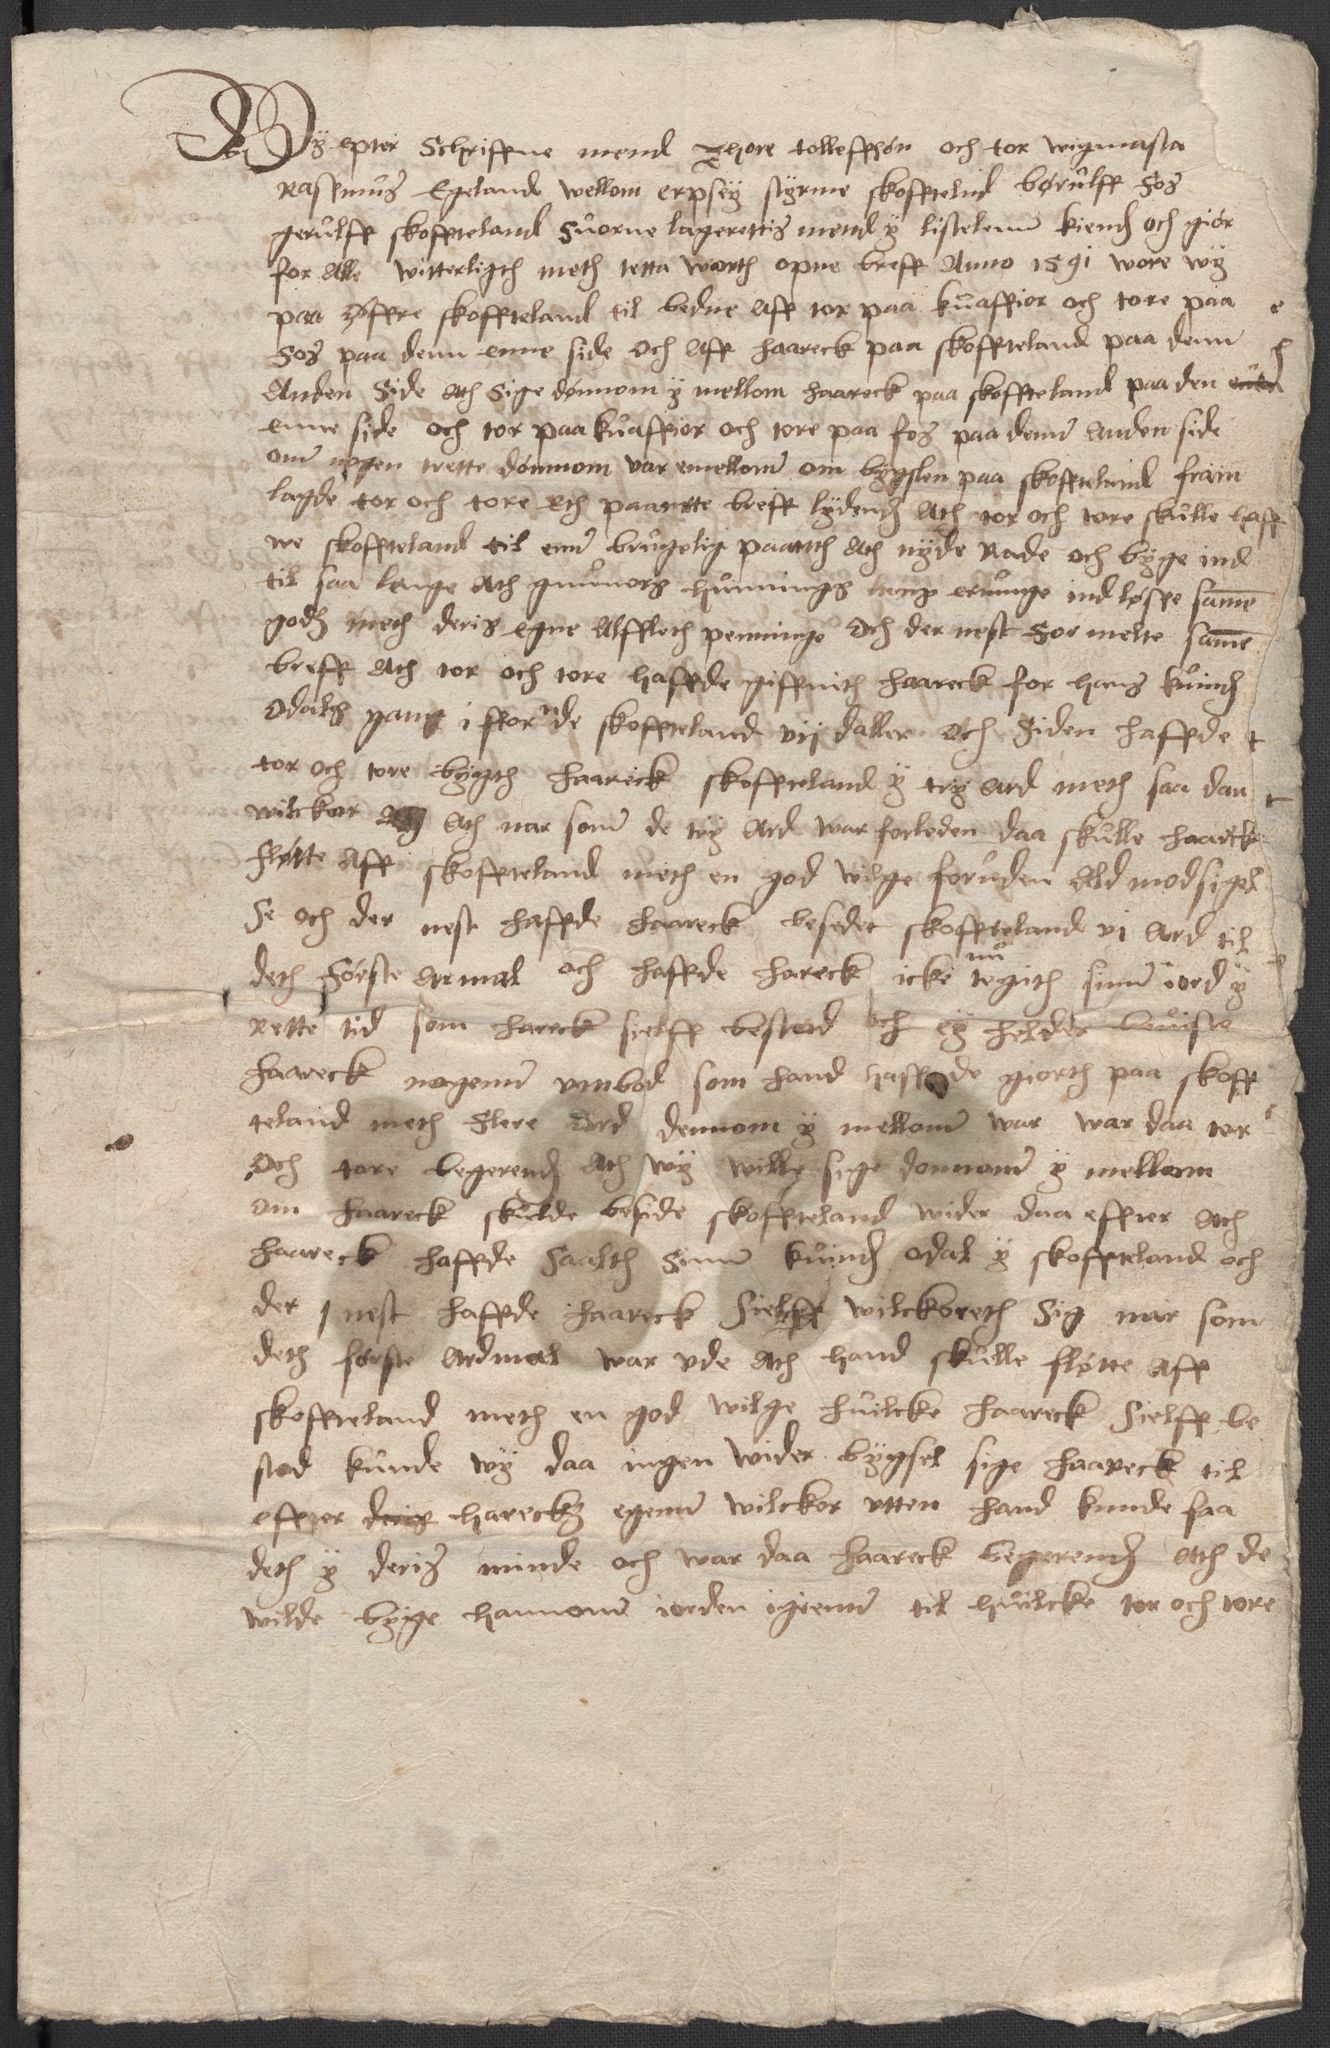 Wy epter Schriffne mend Thore tolleffsøn och tor wigmasta
Rasmus Egeland wellom erpsøy styrme skoffteland børulff fos
gerulff skoffteland suorne lagerettis mend y listelenn kiendis och giør
for alle witterligth meth tette warth opne breff Anno 1591 wore wy
paa yffre skoffteland til bedne aff tor paa kuaffior och tore paa
fos paa denn enne side och aff haareck paa skoffteland paa denn
anden side ath sige dømnom y mellom haareck paa skoffteland paa den
enne side och tor paa kuaffior och tore paa fos paa denn anden side
om nogen trette dømnom var emellom om bygslen paa skoffteland fram
lagde tor och tore eth paantte breff lydendis ath tor och tore skulle haff
we skoffteland til enn brugelig paanth ath nyde rade och byge ind
til saa lenge ath gunuors hunnings erwinge ind løsse samme
godz meth deris egne affleth penninge och der nest formelte samme
breff ath tor och tore haffde giffuith haareck for hans kuindis
odals gang i fforde skoffteland vij daller och siden haffde
tor och tore bygth haareck skoffteland y try aard meth saa dan
wilckor ath nar som de try aard war forleden daa skulle haareck
fløtte aff skoffteland meth en god wilge foruden ald modsigel
se och der nest haffde haareck besedet skoffteland vi aard til
deth første aremal och haffde hareck icke nu tegith sinn iord y
rette tid som hareck sielff bestod och ey helder beuiste
haareck nogenn vmbod som hand haffde giorth paa skoff
teland meth flere ord dennom y mellom war war daa tor
och tore begerendis ath wy wille sige donnom y mellom
om haareck skulde beside skoffteland wider daa effter ath
haareck haffde saalth sinn kuindis odal y skoffteland och
der nest haffde haareck sielff wilckoreth sig nar som
deth første aardmal war vde ath hand skulle fløtte aff
skoffteland meth en god wilge huilcke haareck sielff be
stod kunde wy daa ingen wider bygsel sige haareck til
effter deris harecks egenn wilckor vtten hand kunde faa
deth y deris minde och war daa haareck begerendis ath de
wilde byge hannom iorden igienn til huilcke tor och tore